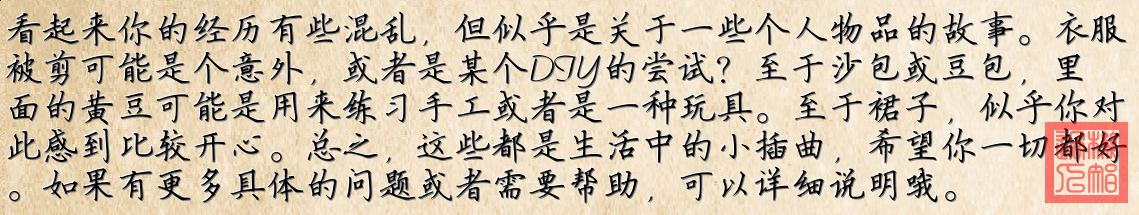 看起来你的经历有些混乱，但似乎是关于一些个人物品的故事。衣服
被剪可能是个意外，或者是某个DIY的尝试？至于沙包或豆包，里
面的黄豆可能是用来练习手工或者是一种玩具。至于裙子，似乎你对
此感到比较开心。总之，这些都是生活中的小插曲，希望你一切都好
。如果有更多具体的问题或者需要帮助，可以详细说明哦。